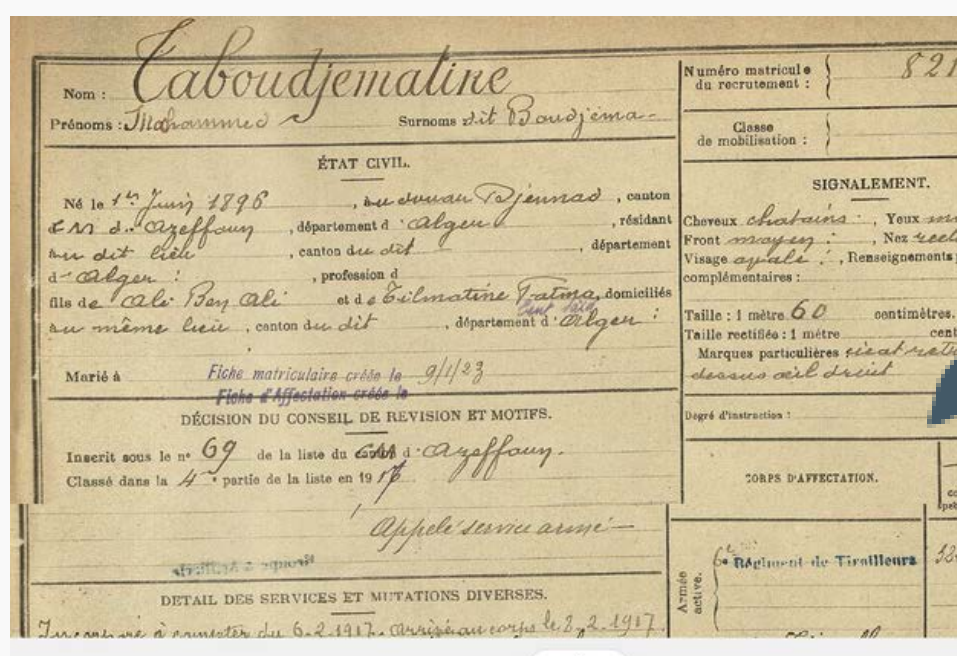 Nom : Taboudjematine
Prénoms : Mohammed Surnoms : dit Boudjema
ÉTAT CIVIL.
Né le 1er Juin 1896, au douar Djennad, canton
CM d'Azeffoun, département d'Alger, résidant
au dit lieu, canton du dit, département
d'Alger :, profession d
fils de Ali Ben Ali et de Tilmatine Fatma, domiciliés
au même lieu, canton du dit, département d'Alger :
Marié à
Fiche matriculaire créée le 9/1/23
Fiche d'Affectation créée le
DÉCISION DU CONSEIL DE REVISION ET MOTIFS.
Inscrit sous le no 69 de la liste du CM d'Azeffoun.
Classé dans la 4e partie de la liste en 1917
Appelé service armé
DETAIL DES SERVICES ET MUTATIONS DIVERSES.
Incorporé à compter du 6.2.1917. Arrivé au corps le 8.2.1917.
Numéro matricule
du recrutement : 821
Classe
de mobilisation :
SIGNALEMENT.
Cheveux chatains, Yeux
Front moyen :, Nez rect
Visage ovale :, Renseignements
complémentaires :
Taille : 1 mètre 60 centimètres.
Taille rectifiée : 1 mètre cent
Marques particulières cicat
dessus œil droit
Degré d'instruction :
CORPS D'AFFECTATION.
Armée
active.
6e Régiment de Tirailleurs